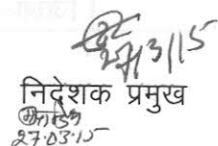 27/3/15
निदेशक प्रमुख
27.03.15